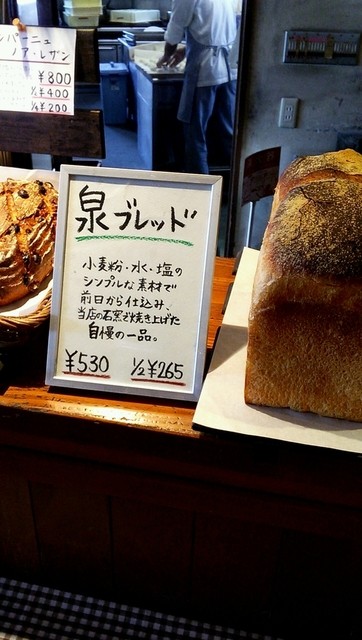 ンパーニュ
ノア・レザン
¥800
½¥400
¼¥200
泉ブレッド
小麦粉・水・塩の
シンプルな素材で
前日から仕込み、
当店の石窯で焼き上げた
自慢の一品。
¥530 ½¥265